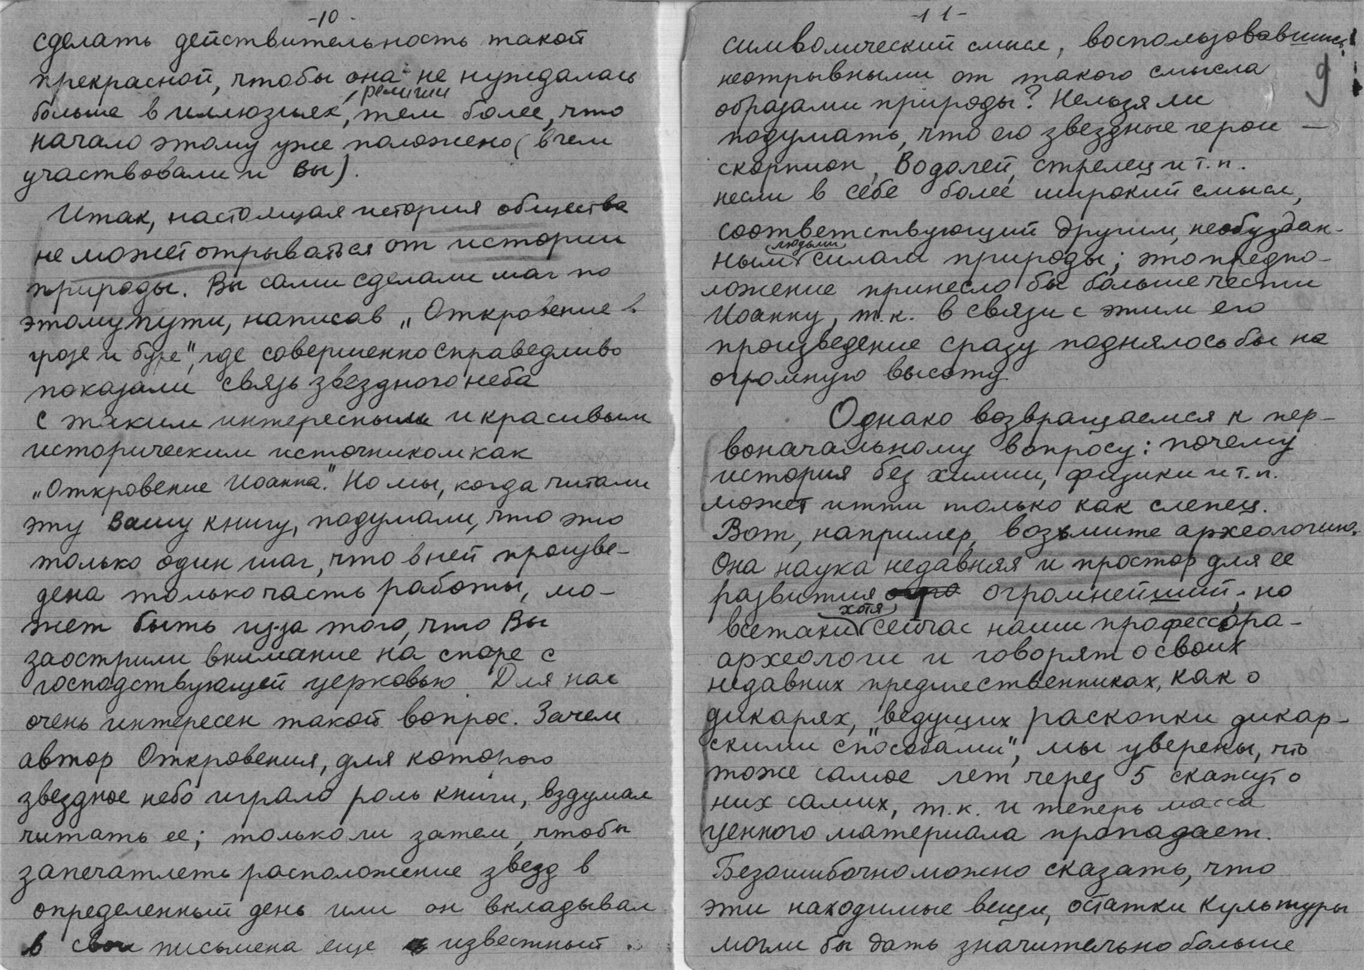 -10-
сделать действительность такой
прекрасной, чтобы она не нуждалась
больше в иллюзиях, религии тем более, что
начало этому уже положено (в чем
участвовали и Вы).
Итак, настоящая история общества
не может отрываться от истории
природы. Вы сами сделали шаг по
этому пути, написав „Откровение в
грозе и буре", где совершенно справедливо
показали связь звездного неба
с таким интересным и красивым
историческим источником как
„Откровение Иоанна". Но мы, когда читали
эту Вашу книгу, подумали, что это
только один шаг, что в ней произве-
дена только часть работы, мо-
жет быть из за того, что Вы
заострили внимание на споре с
господствующей церковью. Для нас
очень интересен такой вопрос. Зачем
автор Откровения, для которого
звездное небо играло роль книги, вздумал
читать ее; только ли затем, чтобы
запечатлеть расположение звезд в
определенный день или он вкладывал
в свои письмена еще и известный
-11-
9
символический смысл, воспользовавшись
неотрывными от такого смысла
образами природы? Нельзя ли
подумать, что его звездные герои —
скорпион, Водолей, стрелец и т.п.
несли в себе более широкий смысл,
соответствующий другим, необуздан-
ным людьми силам природы; это предпо-
ложение принесло бы больше чести
Иоанну, т.к. в связи с этим его
произведение сразу поднялось бы на
огромную высоту.
Однако возвращаемся к пер-
воначальному вопросу: почему
история без химии, физики и т.п.
может итти только как слепец.
Вот, например, возьмите археологию.
Она наука недавняя и простор для ее
развития огромнейший, но
всетаки хотя сейчас наши профессора-
археологи и говорят о своих
недавних предшественниках, как о
дикарях, ведущих раскопки дикар-
скими „способами", мы уверены, что
тоже самое лет через 5 скажут о
них самих, т.к. и теперь масса
ценного материала пропадает.
Безошибочно можно сказать, что
эти находимые вещи, остатки культуры
могли бы дать значительно больше